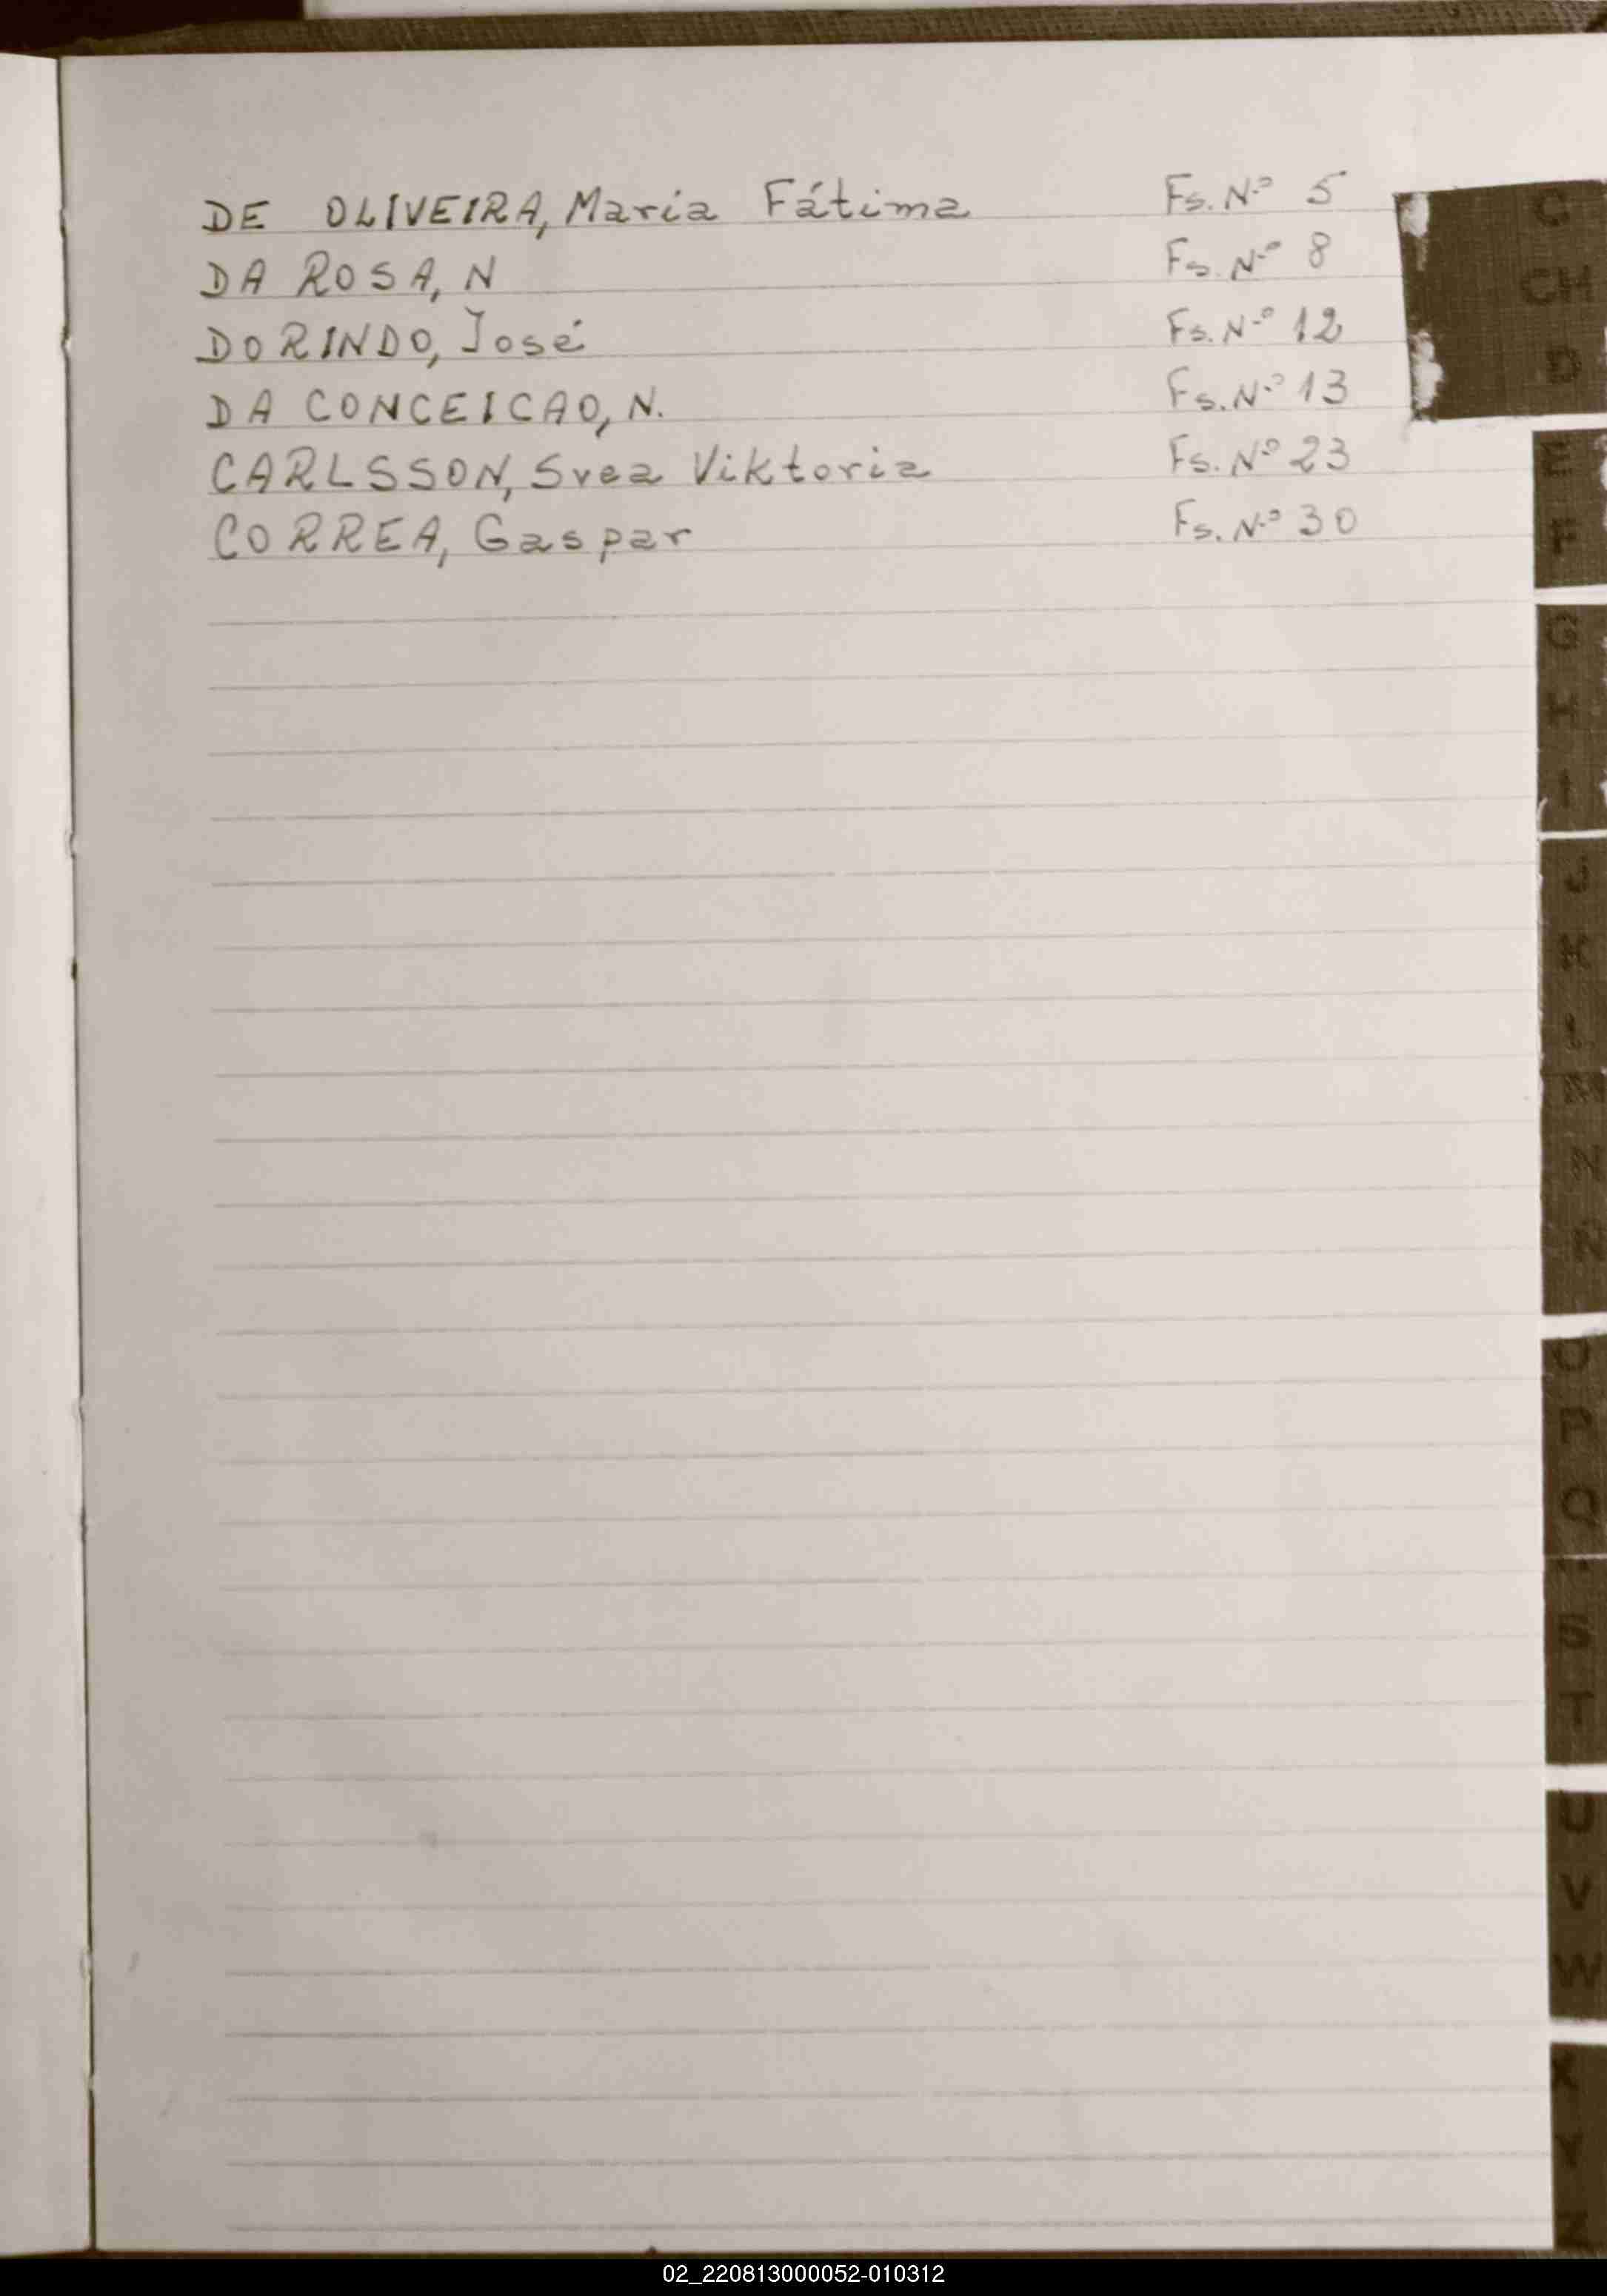 DE OLIVEIRA, Maria Fátima Fs. Nº 5
DA ROSA, N Fs. Nº 8
DORINDO, José Fs. Nº 12
DA CONCEICAO, N. Fs. Nº 13
CARLSSON, Svea Viktoria Fs. Nº 23
CORREA, Gaspar Fs. Nº 30
C
CH
D
E
F
G
H
I
J
K
L
M
N
Ñ
O
P
Q
S
T
U
V
W
X
Y
Z
02_220813000052-010312